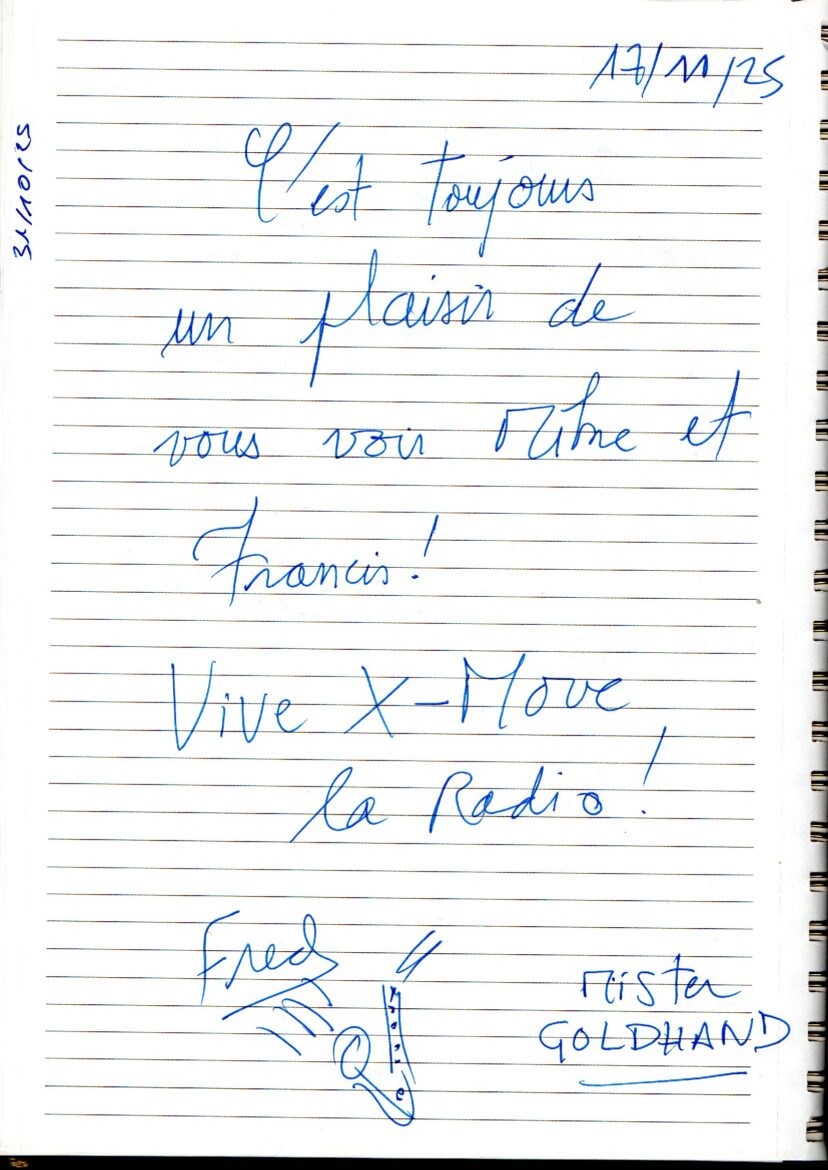 17/11/25
31/10/25
C'est toujours
un plaisir de
vous voir et
Francis!
Vive X-Move
la Radio!
Fred
Mister
GOLDHAND